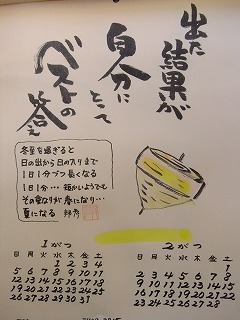 出た結果が
自分にとって
ベストの答え
冬至を過ぎると
日の出から日の入りまで
1日1分づつ長くなる
1日1分…短かいようでも
その重なりが春になり…
夏になる 邦彦
1がつ
日 月 火 水 木 金 土
1 2 3 4
5 6 7 8 9 10 11
12 13 14 15 16 17 18
19 20 21 22 23 24 25
26 27 28 29 30 31
2がつ
日 月 火 水 木 金 土
1
2 3 4 5 6 7 8
9 10 11 12 13 14 15
16 17 18 19 20 21 22
23 24 25 26 27 28